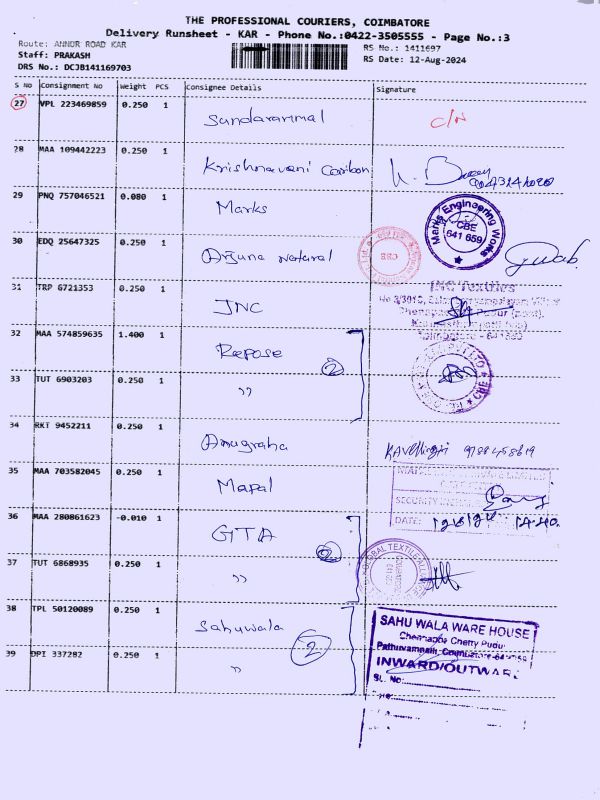 THE PROFESSIONAL COURIERS, COIMBATORE
Delivery Runsheet - KAR - Phone No.:0422-3505555 - Page No.:3
Route: ANNUR ROAD KAR
RS No.: 1411697
Staff: PRAKASH
RS Date: 12-Aug-2024
DRS No.: DCJB141169703
S No Consignment No Weight PCS Consignee Details Signature
27 VPL 223469859 0.250 1 Sundarammal C/N
28 MAA 109442223 0.250 1 Krishnaveni Carbon
29 PNQ 757046521 0.080 1 Marks
Marks Engineering Works
CBE
641 659
30 EDQ 25647325 0.250 1 Arjuna Natural
CBE
31 TRP 6721353 0.250 1 JNC
JNC Textiles
32 MAA 574859635 1.400 1 Repose
2
CBE
33 TUT 6903203 0.250 1 "
34 RKT 9452211 0.250 1 Anugraha
35 MAA 703582045 0.250 1 Mapal
SECURITY
DATE:
36 MAA 280861623 -0.010 1 GTA
2
GLOBAL TEXTILE ALLIANCE
37 TUT 6868935 0.250 1 "
38 TPL 50120089 0.250 1 Sahuwala
2
SAHU WALA WARE HOUSE
Chennappa Chetty Pudur
Pathuvampalli, Coimbatore-641 659
INWARD/OUTWARD
39 DPI 337282 0.250 1 "
SL. No: